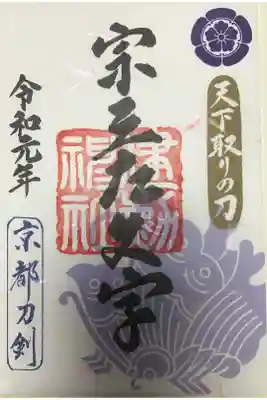 天下取りの刀
宗三左文字
建勲
神社
令和元年
京都刀剣